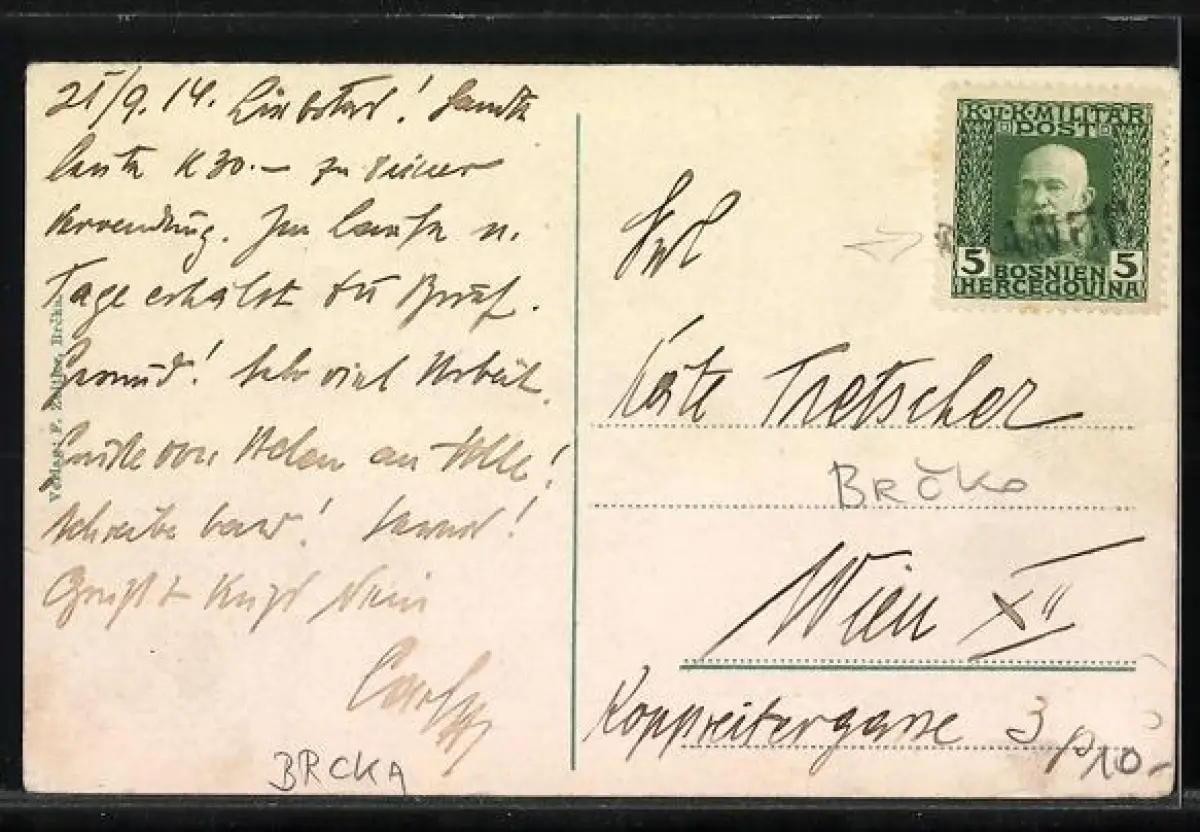 21/9. 14. Liebstes! Sandte
heute K 30.— zu deiner
Verwendung. Im Laufe n.
Tage erhälst du Brief.
Gesund! Sehr viel Arbeit.
Grüße von Adam an Alle!
Schreibe bald!
Gruß & Kuß Dein
BRCKA
Verlag: F. Brčka
K.u.K. MILITÄR
POST
5 5
BOSNIEN
HERCEGOVINA
Frl
Käte Tretscher
Brčko
Wien XII
Koppreitergasse 3
10.-